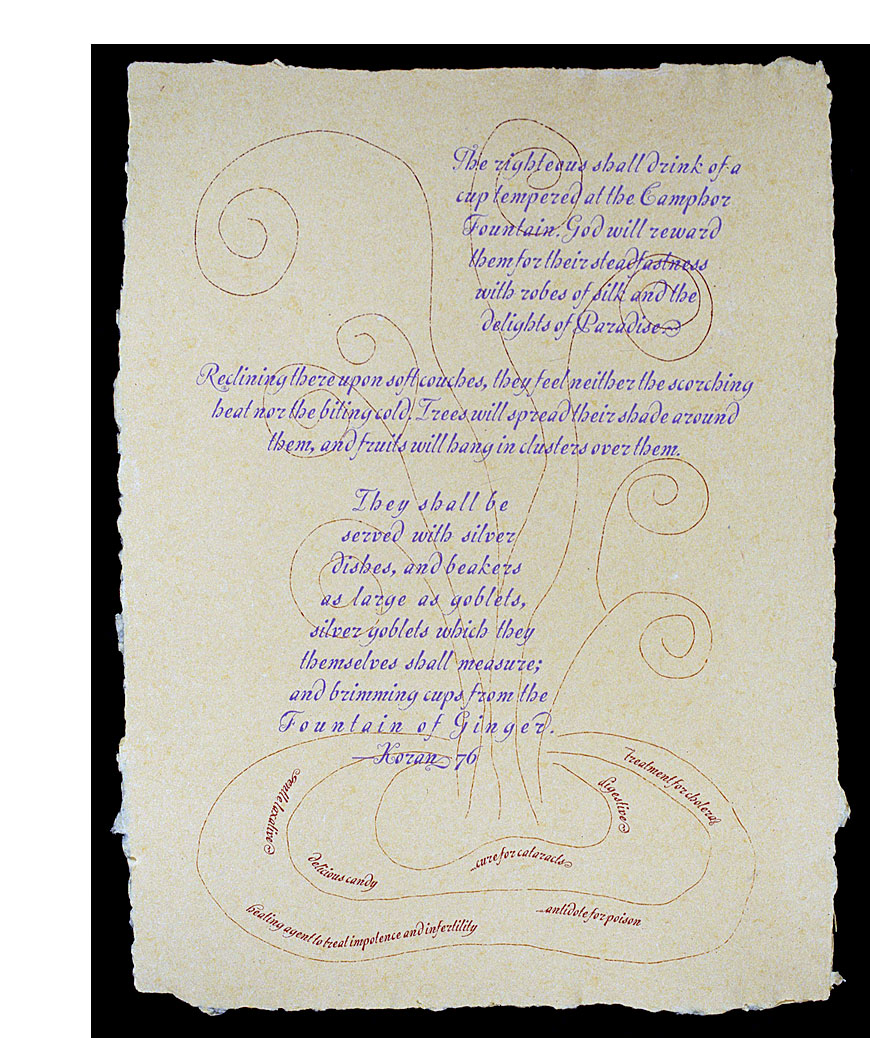 The righteous shall drink of a
cup tempered at the Camphor
Fountain. God will reward
them for their steadfastness
with robes of silk and the
delights of Paradise
Reclining there upon soft couches, they feel neither the scorching
heat nor the biting cold. Trees will spread their shade around
them, and fruits will hang in clusters over them.
They shall be
served with silver
dishes, and beakers
as large as goblets,
silver goblets which they
themselves shall measure;
and brimming cups from the
Fountain of Ginger.
—Koran 76
treatment for cholera
gentle laxative
digestive
delicious candy
cure for cataracts
antidote for poison
healing agent to treat impotence and infertility